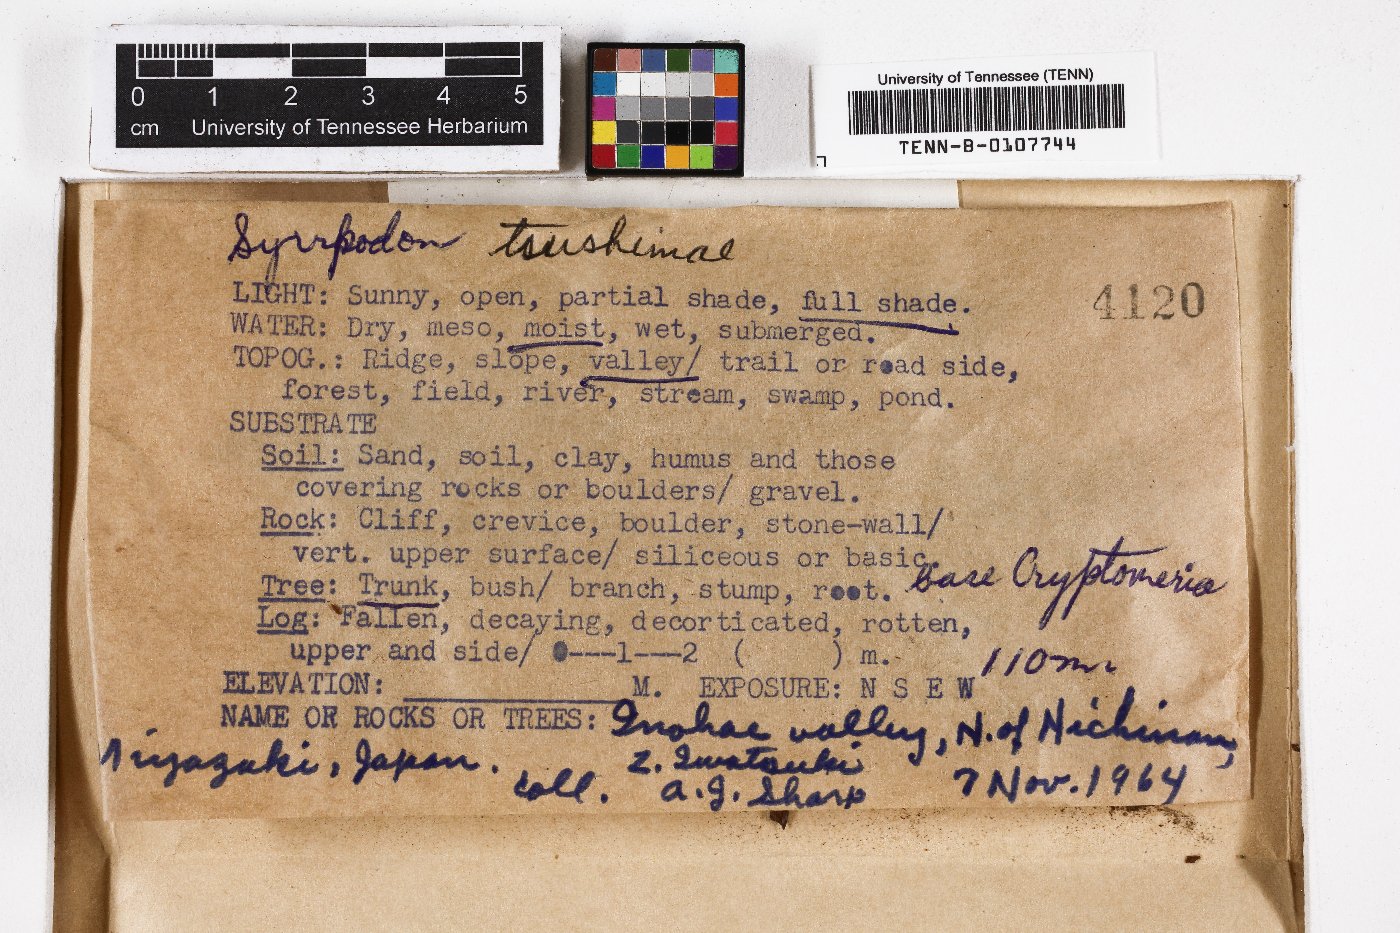 0 1 2 3 4 5
cm University of Tennessee Herbarium
University of Tennessee (TENN)
TENN-B-0107744
Syrrpodon tsushimae
4120
LIGHT: Sunny, open, partial shade, full shade.
WATER: Dry, meso, moist, wet, submerged.
TOPOG.: Ridge, slope, valley/ trail or road side,
forest, field, river, stream, swamp, pond.
SUBSTRATE
Soil: Sand, soil, clay, humus and those
covering rocks or boulders/ gravel.
Rock: Cliff, crevice, boulder, stone-wall/
vert. upper surface/ siliceous or basic
Tree: Trunk, bush/ branch, stump, root. base Cryptomeria
Log: Fallen, decaying, decorticated, rotten,
upper and side/ 0---1---2 ( ) m.
110m.
ELEVATION: ____________ M. EXPOSURE: N S E W
NAME OR ROCKS OR TREES: Inohae valley, N. of Nichinan,
Miyazaki, Japan. Z. Iwatsuki
Coll. A.J. Sharp 7 Nov. 1964